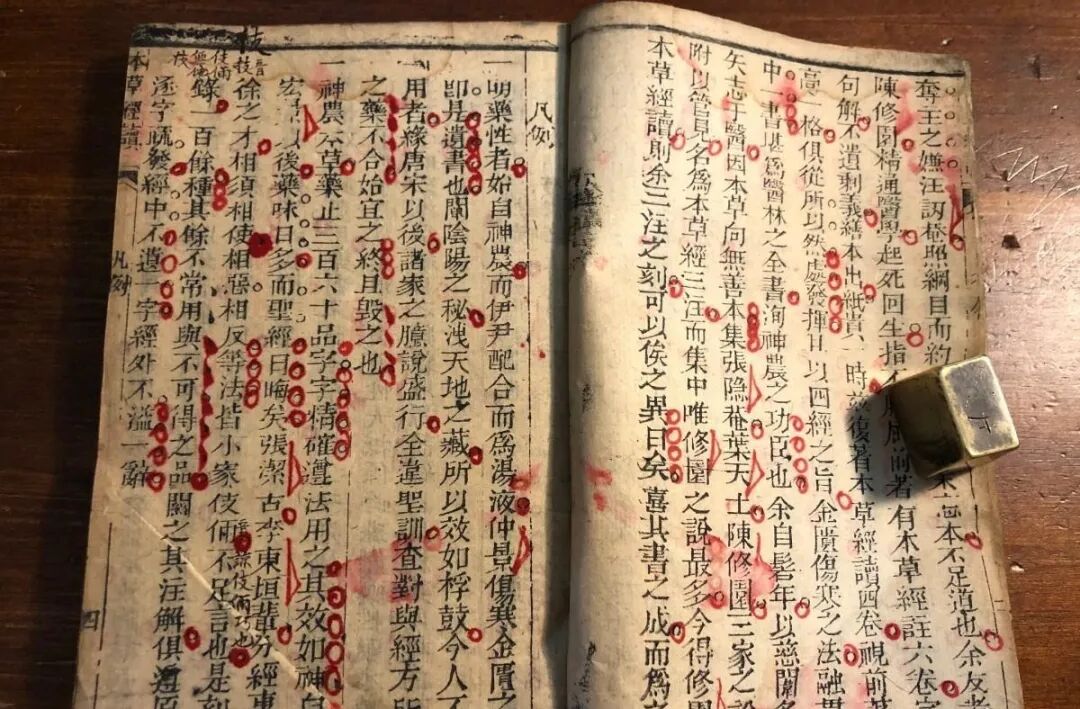 奪王之嫵汪訒菴照綱目而約
本不足道也余友
陳修園精通醫學起死回生指
前著有本草經註六卷字
句解不遺剩義繕本出紙貴一時故復著本草經讀四卷視前
高一格俱從所以然處發揮日以四經之旨金匱傷寒之法融貫
中一書堪為醫林之全書洵神農之功臣也余自髫年以慈闈多
矢志于醫因本草向無善本集張隐菴葉天士陳修園三家之說
附以管見名為本草經三注而集中唯修園之說最多今得修園
本草經讀則余三注之刻可以俟之異日矣喜其書之成而為
凡例
一明藥性者始自神農而伊尹配合而為湯液仲景傷寒金匱之
即是遺書也闡陰陽之秘洩天地之藏所以效如桴鼓今人不
用者緣唐宋以後諸家之臆說盛行全違聖訓查對與經方所
之藥不合始宜之終且毀之也
一神農本草藥止三百六十品字字精確遵法用之其效如神自
宏以後藥味日多而聖經日晦矣張潔古李東垣輩分經專
徐之才相須相使相惡相反等法皆小家伎倆不足言也是刻
錄一百餘種其餘不常用與不可得之品闕之其注解俱遵原
逐字疏發經中不遺一字經外不溢一辭
本草經讀
凡例
四